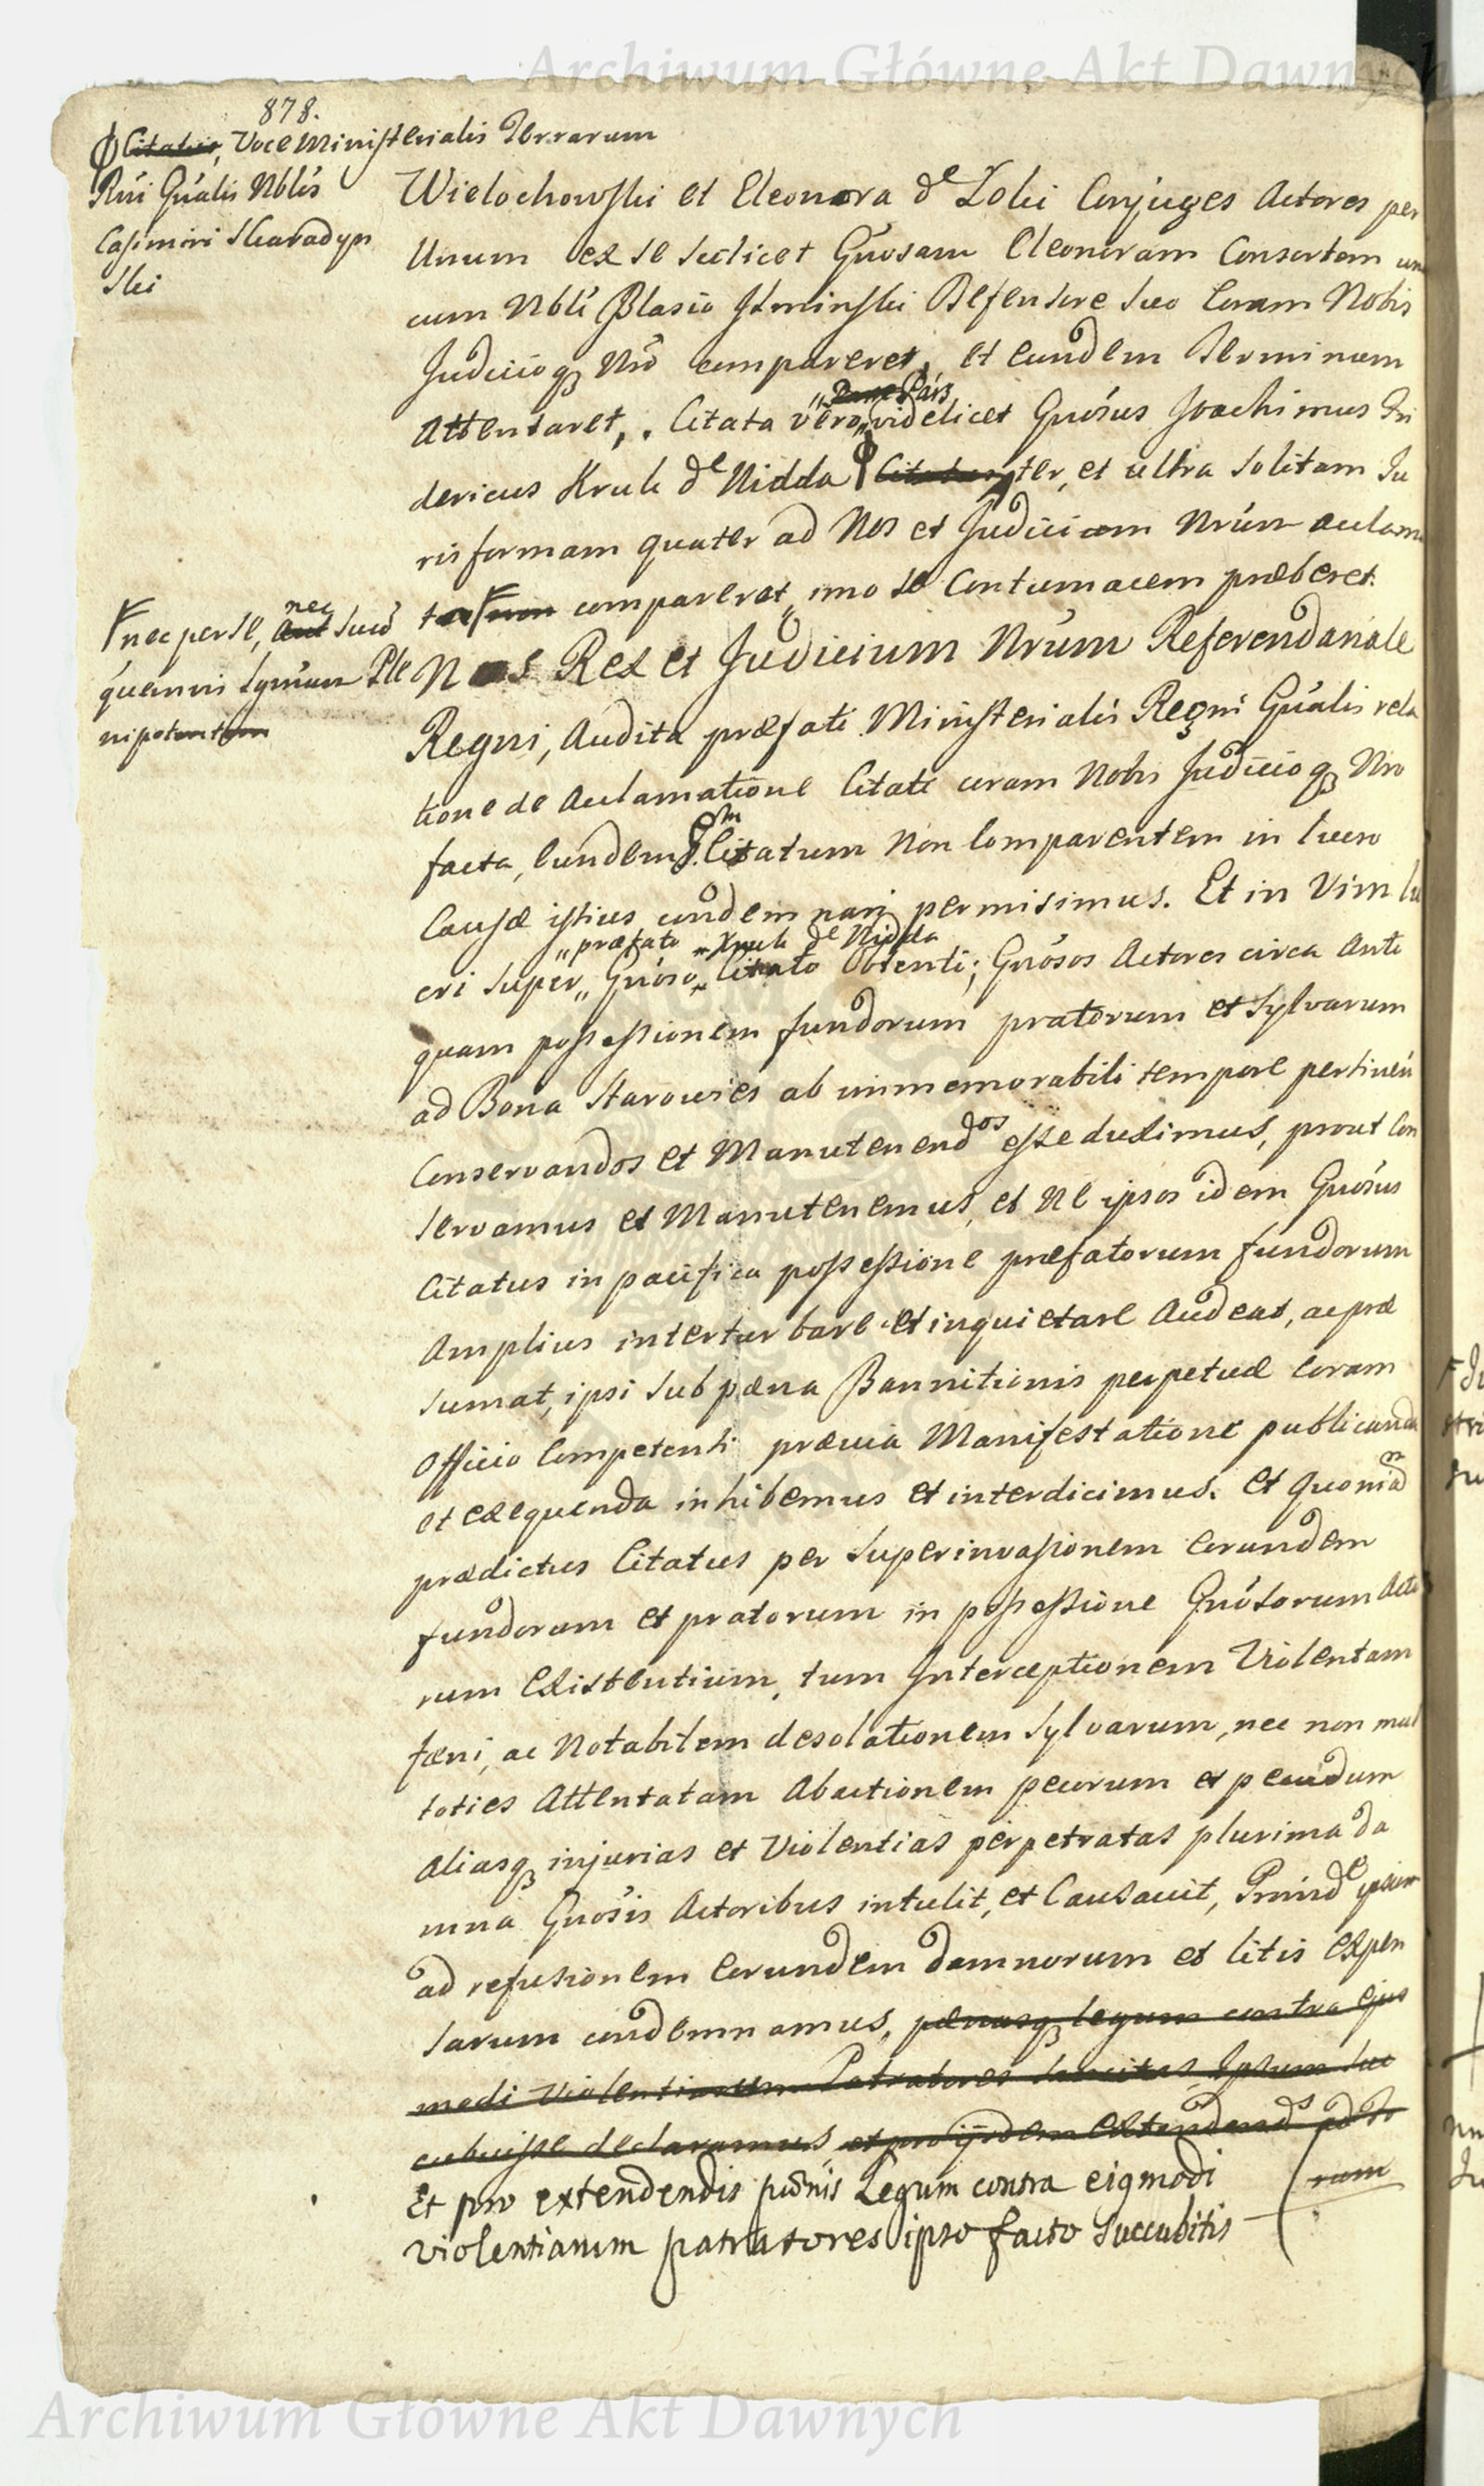 Archiwum Główne Akt Dawnych
878.
Citatus, Voce Ministerialis Terrarum
Rni Gnalis Nblis
Casimiri Skaradyn
ski
Wielochowski et Eleonora de Zolei Conjuges Actores per
Unum ex se scilicet Gnosam Eleonoram Consortem un
cum Nbli Blasio Ilminski Defensore suo Coram Nobis
Judicioq Nro compareret, et eundem Terminum
Attentaret, Citata vero Pars videlicet Gnosus Joachimus Fri
dericus Kruk de Nidda Citatus ter, et ultra solitam Ju
ris formam quater ad Nos et Judicium Nrum aclama
tus non compareret, imo se Contumacem præberet.
nec per se, aut nec suū
quemvis Lgmum Ple
nipotentem
Nos Rex et Judicium Nrum Referendariale
Regni, Audita præfati Ministerialis Regni Gnalis rela
tione de Aclamatione Citati coram Nobis Judicioq Nro
facta, eundem Citatum Non Comparentem in lucro
Causæ istius condemnari permisimus. Et in Vim lu
præfato Kruk de Nidda
cri super Gnoso Citato Obtenti; Gnosos Actores circa Anti
quam possessionem fundorum pratorum et Sylvarum
ad Bona Starowies ab immemorabili tempore pertinen
Conservandos et Manutenendos esse duximus, prout Con
servamus et Manutenemus, et Ne ipsos idem Gnosus
Citatus in pacifica possessione præfatorum fundorum
Amplius inturbare et inquietare Audeat, ac præ
sumat, ipsi sub pæna Bannitionis perpetuæ Coram
Officio Competenti prævia Manifestatione publicanda
et exequenda inhibemus et interdicimus. Et quoniam
prædictus Citatus per superinvasionem Eorundem
fundorum et pratorum in possessione Gnosorum Acto
rum Existentium, tum Interceptionem Violentam
fæni, ac Notabilem desolationem Sylvarum, nec non mul
toties Attentatam Abactionem pecorum et pecudum
Aliasq injurias et Violentias perpetratas plurima da
mna Gnosis Actoribus intulit, et Causavit, Proinde ipsum
ad refusionem Eorundem damnorum et litis Expen
sarum condemnamus, pænasq legum contra ejus
modi Violentiarum Patratores sancitas Ipsum suc
cubuisse declaramus, et pro ijsdem Extendends ad Fo
rum
Et pro extendendis pœnis Legum contra eigmodi
violentiarum patratores ipso facto succubitis
Archiwum Główne Akt Dawnych